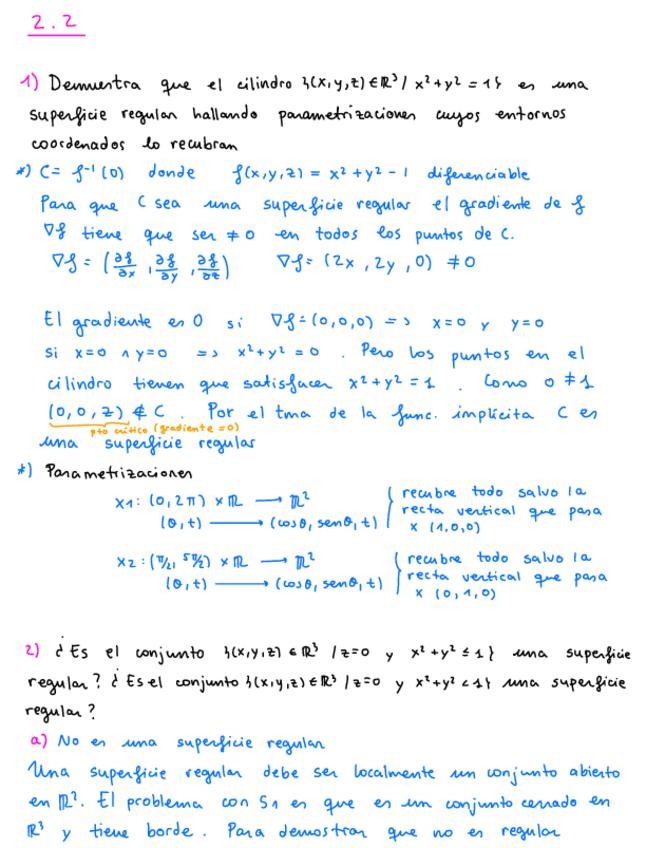 2.2
1) Demuestra que el cilindro {(x,y,z) ∈ ℝ³ / x²+y² = 1} es una
superficie regular hallando parametrizaciones cuyos entornos
coordenados lo recubran
*) C = f⁻¹(0) donde f(x,y,z) = x² + y² - 1 diferenciable
Para que C sea una superficie regular el gradiente de f
∇f tiene que ser ≠ 0 en todos los puntos de C.
∇f = (∂f/∂x, ∂f/∂y, ∂f/∂z) ∇f = (2x, 2y, 0) ≠ 0
El gradiente es 0 si ∇f = (0,0,0) => x=0 y y=0
si x=0 ∧ y=0 => x²+y² = 0. Pero los puntos en el
cilindro tienen que satisfacer x²+y² = 1. Como 0 ≠ 1
(0,0,z) ∉ C. Por el tma de la func. implícita C es
pto crítico (gradiente = 0)
una superficie regular
*) Parametrizaciones
x1: (0,2π) × ℝ → ℝ² recubre todo salvo la
(θ,t) → (cosθ, senθ, t) recta vertical que pasa
x (1,0,0)
x2: (π/2, 5π/2) × ℝ → ℝ² recubre todo salvo la
(θ,t) → (cosθ, senθ, t) recta vertical que pasa
x (0,1,0)
2) ¿Es el conjunto {(x,y,z) ∈ ℝ³ / z=0 y x²+y² ≤ 1} una superficie
regular? ¿Es el conjunto {(x,y,z) ∈ ℝ³ / z=0 y x²+y² < 1} una superficie
regular?
a) No es una superficie regular
Una superficie regular debe ser localmente un conjunto abierto
en ℝ². El problema con S1 es que es un conjunto cerrado en
ℝ³ y tiene borde. Para demostrar que no es regular